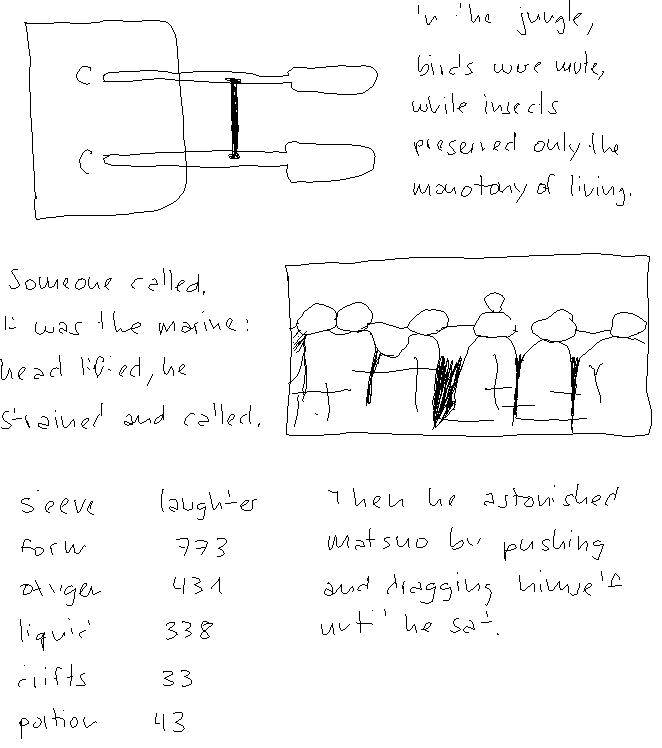 In the jungle,
birds were mute,
while insects
preserved only the
monotony of living.
Someone called.
It was the marine:
head lifted, he
strained and called.
sleeve laughter
form 773
oxygen 431
liquid 338
drifts 33
portion 43
Then he astonished
Matsuo by pushing
and dragging himself
until he sat.